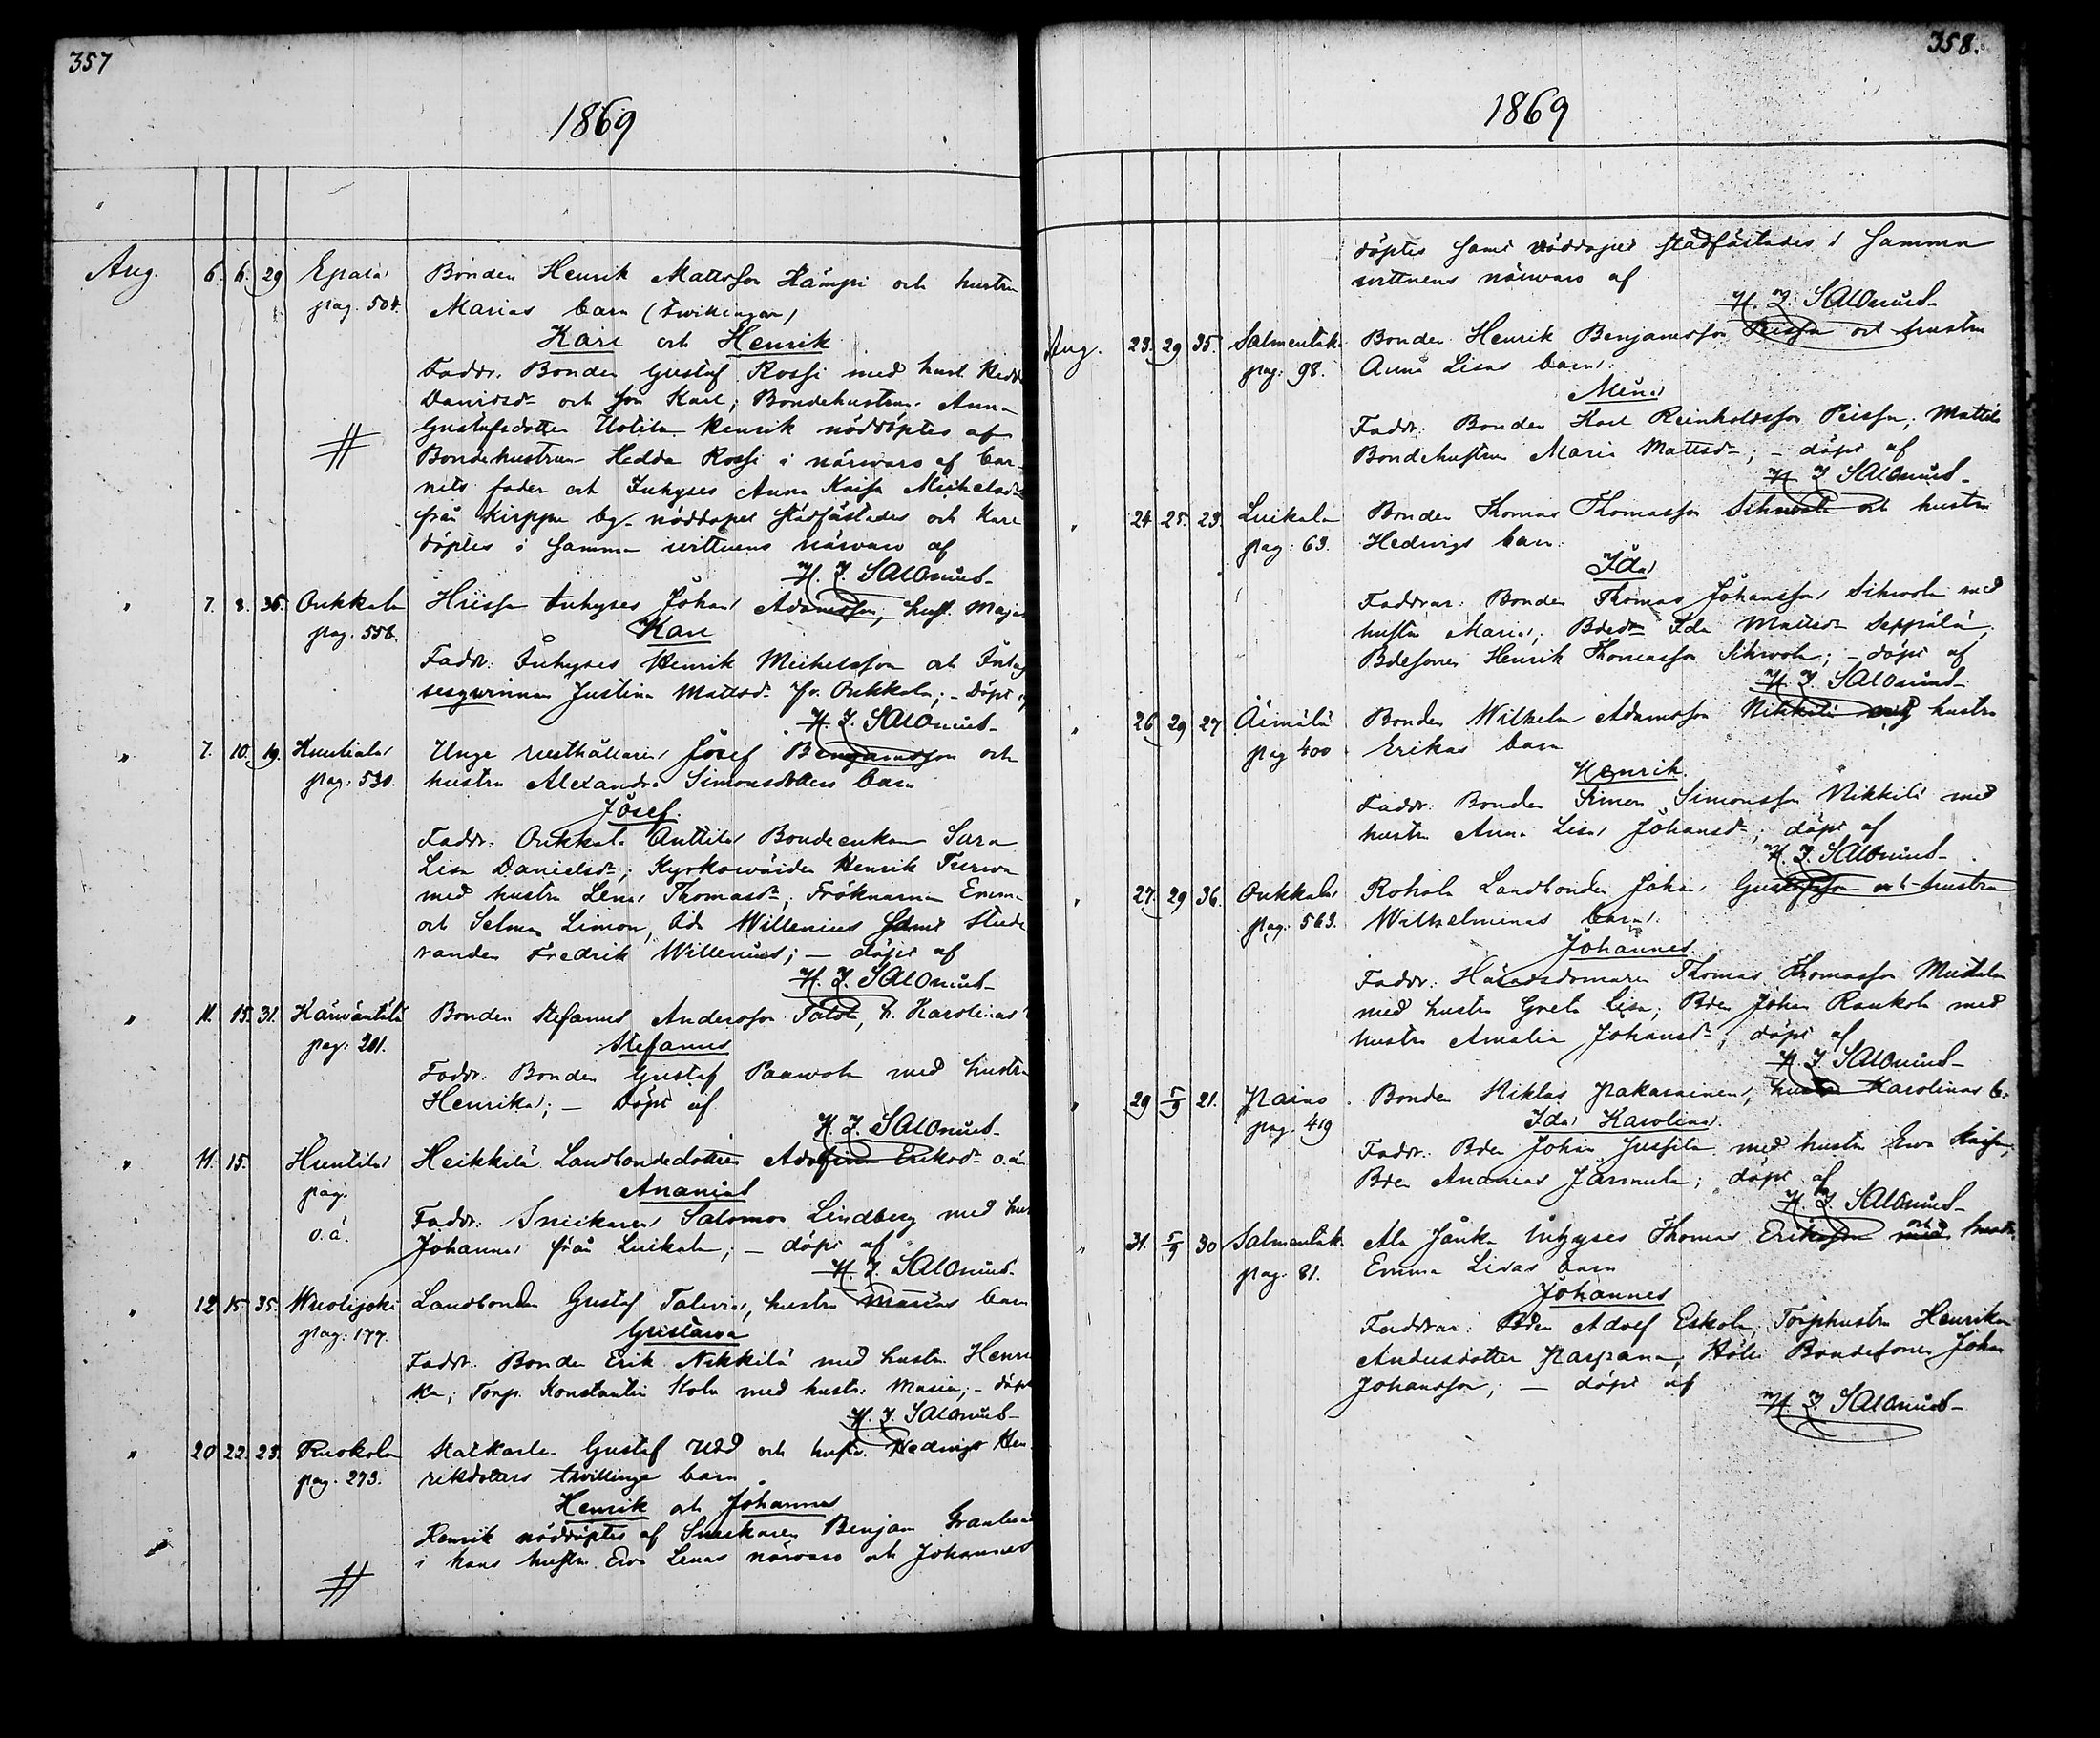 357
1869
Aug. 6. 6. 29 Epaala Bonden Henrik Mattsson Kämpi och hustru
pag. 504. Marias barn (twillingar)
Karl och Henrik
Faddr. Bonden Gustaf Rossi med hust. Hedda
Danidsdr och son Karl; Bondehustrun Anna
Gustafsdotter Uotila. Henrik nöddöptes af
# Bondehustrun Hedda Rossi i närwaro af bar-
nets fader och Inhyses Anna Kaisa Michelsdr
från Kirppu by - nöddopet stadfästades och Karl
döptes i samma wittnens närwaro af
H. J. Salonius
" 7. 8. 36. Onkkala Hiissa Inhyses Johan Adamsson, hust. Majas
pag. 558. Karl
Faddr. Inhyses Henrik Michelsson och Inhy
sesqwinnan Justina Mattsdr fr. Onkkala; - döpt af
H. J. Salonius
" 7. 10. 19. Kuutiala Unge rusthållaren Josef Benjamsson och
pag: 530. hustru Alexandra Simonsdotters barn
Josef
Faddr. Onkkala Anttila Bondeenkan Sara
Lisa Danielsdr; Kyrkowärden Henrik Turwa
med hustru Lena Thomasdr; Fröknarna Emma
och Selma Limon, Ida Willenius samt Stude
randen Fredrik Willenius; - döpt af
H. J. Salonius
" 11. 15. 31. Kärwäntälä Bonden Stefanus Andersson Tatola, h. Karolinas
pag: 201. Stefanus
Faddr. Bonden Gustaf Paawola med hustru
Henrika; - döpt af
H. J. Salonius
" 11. 15. Huntila Heikkilä Landbondedottren Adolfina Eriksdr o.ä.
pag. Ananias
o.ä. Faddr. Snickaren Salomon Lindberg med hus
Johanna från Luikala; - döpt af
H. J. Salonius
" 12. 15. 35. Wuolijoki Landbonden Gustaf Talwia, hustru Marias barn
pag: 177. Gustawa
Faddr. Bonden Erik Nikkilä med hustr. Henri
ka; Torp. Konstantin Kola med hustr. Maria; - döpt
H. J. Salonius
" 20 22. 23. Ruokola Statkarlen Gustaf Udd och hustr. Hedwigs Hen
pag. 273. rikdotters twillinge barn
Henrik och Johannes
Henrik nöddöptes af Snickaren Benjam
# i hans hustru Ewa Lenas närwaro och Johannes
358.
1869
döptes samt nöddopet stadfästades i samma
wittnens närwaro af
H. J. Salonius
Aug. 23. 29 35. Salmentaka Bonden Henrik Benjamsson Peissa och hustru
pag: 98. Anna Lisas barn
Mina
Faddr: Bonden Karl Reinholdsson Peissa; Mattila
Bondehustrun Maria Mattsdr; - döpt af
H. J. Salonius
" 24 25. 23. Luikala Bonden Thomas Thomasson Sihwola och hustru
pag: 63. Hedwigs barn
Ida
Faddrar: Bonden Thomas Johansson Sihwola med
hustru Maria; Bdedr Ida Mattsdr Seppälä;
Bdesonen Henrik Thomasson Sihwola; - döpt af
H. J. Salonius
" 26 29 27 Äimälä Bonden Wilhelm Adamsson Nikkilä och hustru
pag 400 Erikas barn
Henrik
Faddr: Bonden Simon Simonsson Nikkilä med
hustru Anna Lisa Johansdr; döpt af
H. J. Salonius
" 27. 29 36. Onkkala Rohola Landbonden Johan Gustafsson och hustrun
pag. 563. Wilhelminas barn
Johannes
Faddr: Häradsdomaren Thomas Thomasson Mustala
med hustru Greta Lisa; Bden Johan Raukola med
hustru Amalia Johansdr; döpt af
H. J. Salonius
" 29 5/9 21. Paino Bonden Niklas Pakarainen, hustru Karolinas b.
pag. 419 Ida Karolina
Faddr. Bden Johan Jussila med hustru Ewa Kaisa,
Bden Ananias Järmula; döpt af
H. J. Salonius
" 31. 5/9 30 Salmentaka Ala Jänkä Inhyses Thomas Eriksson och hustru
pag. 81. Emma Lisas barn
Johannes
Faddrar: Bden Adolf Eskola, Torphustrun Henrika
Andersdotter Parpana, Hölli Bondesonen Johan
Johansson; - döpt af
H. J. Salonius